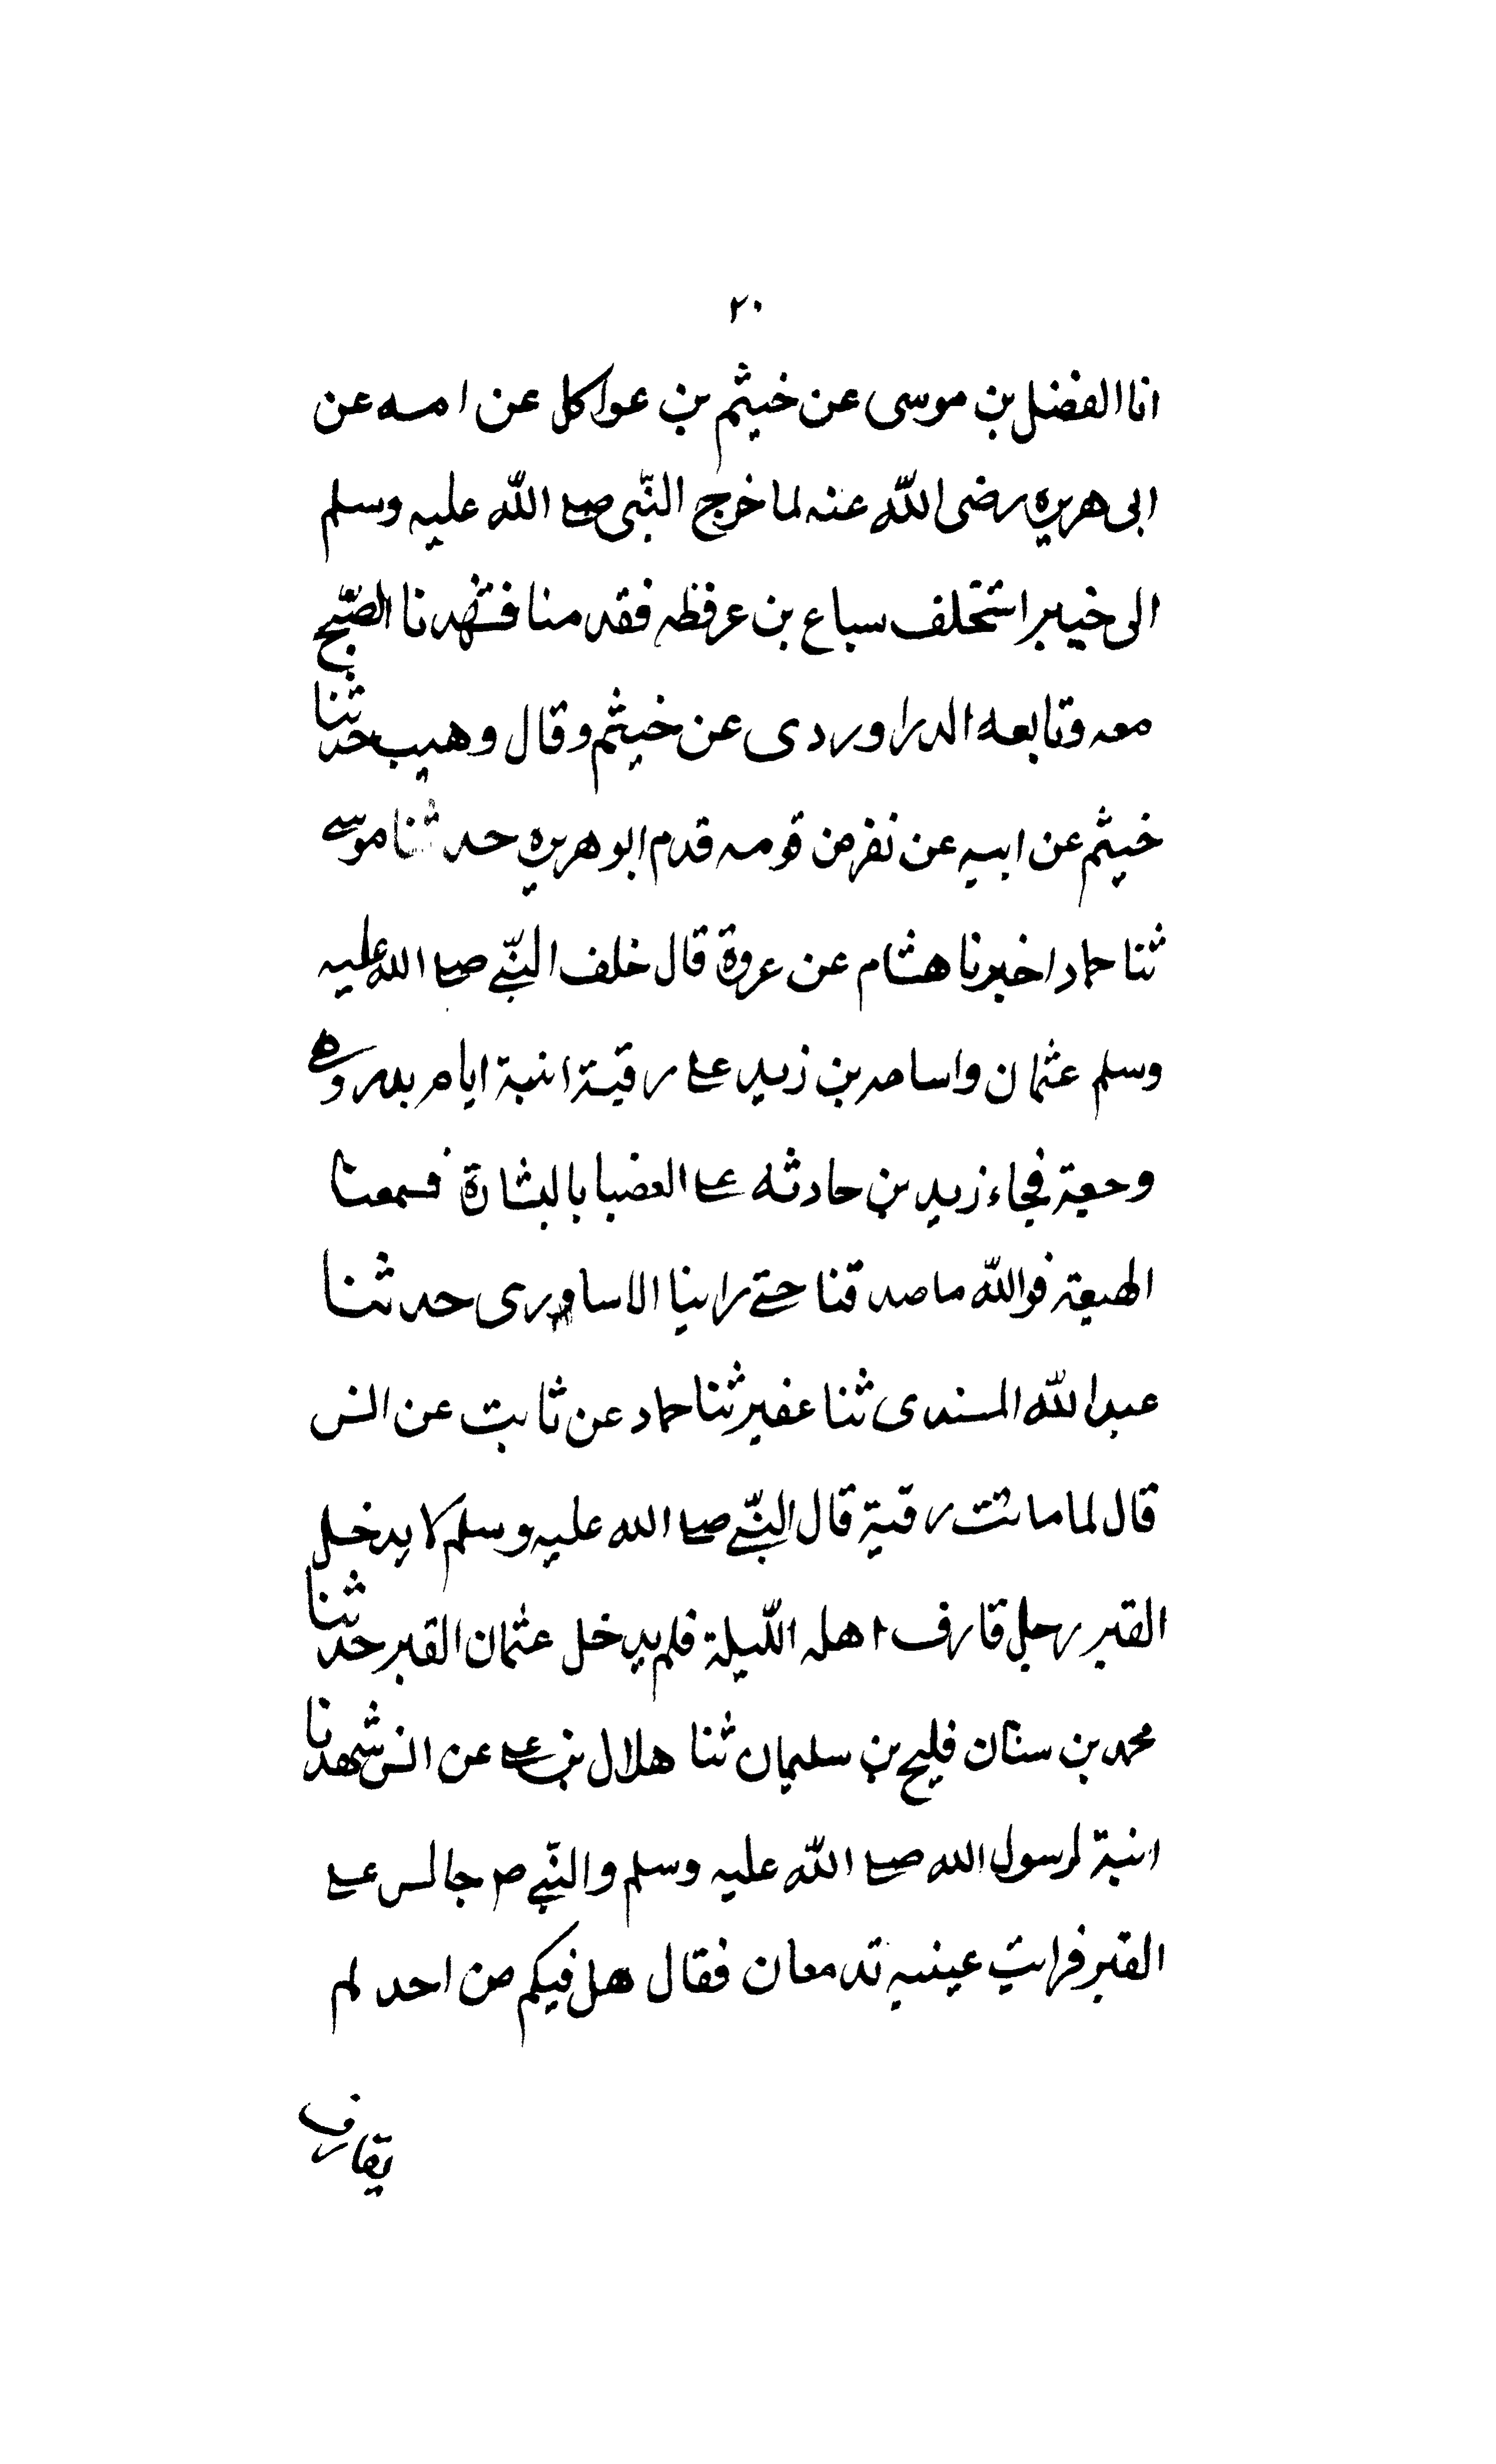 ٢٠
انا الفضل بن موسى عن خيثم بن عواكل عن امه عن
ابى هريره رضى الله عنه لما خرج النّبى صلى الله عليه وسلم
الى خيبر استخلف سباع بن عرفظه فقدمنا فشهدنا الصّبح
معه وتابعه الدراوردى عن خيثم وقال وهيب حدثنا
خيثم عن ابيه عن نفر من قومه قدم ابو هريره حدثنا موسى
ثنا حماد اخبرنا هشام عن عروة قال خلف النّبى صلى الله عليه
وسلم عثمان واسامه بن زيد على رقية ابنة ايام بدر وهى
وجعة فجاء زيد بن حادثه على العضبا بالبشارة فسمعنا
الهيعة فوالله ما صدقنا حتى راينا الاساورى حدثنا
عبد الله المسندى ثنا عفير ثنا حماد عن ثابت عن انس
قال لما ماتت رقية قال النّبى صلى الله عليه وسلم لا يدخل
القبر رجل قارف اهله اللّيلة فلم يدخل عثمان القبر حدثنا
محمد بن سنان فليح بن سليمان ثنا هلال بن على عن انس شهدنا
ابنة لرسول الله صلى الله عليه وسلم والنّبى ص جالس على
القبر فرايت عينيه تدمعان فقال هل فيكم من احد لم
يقارف